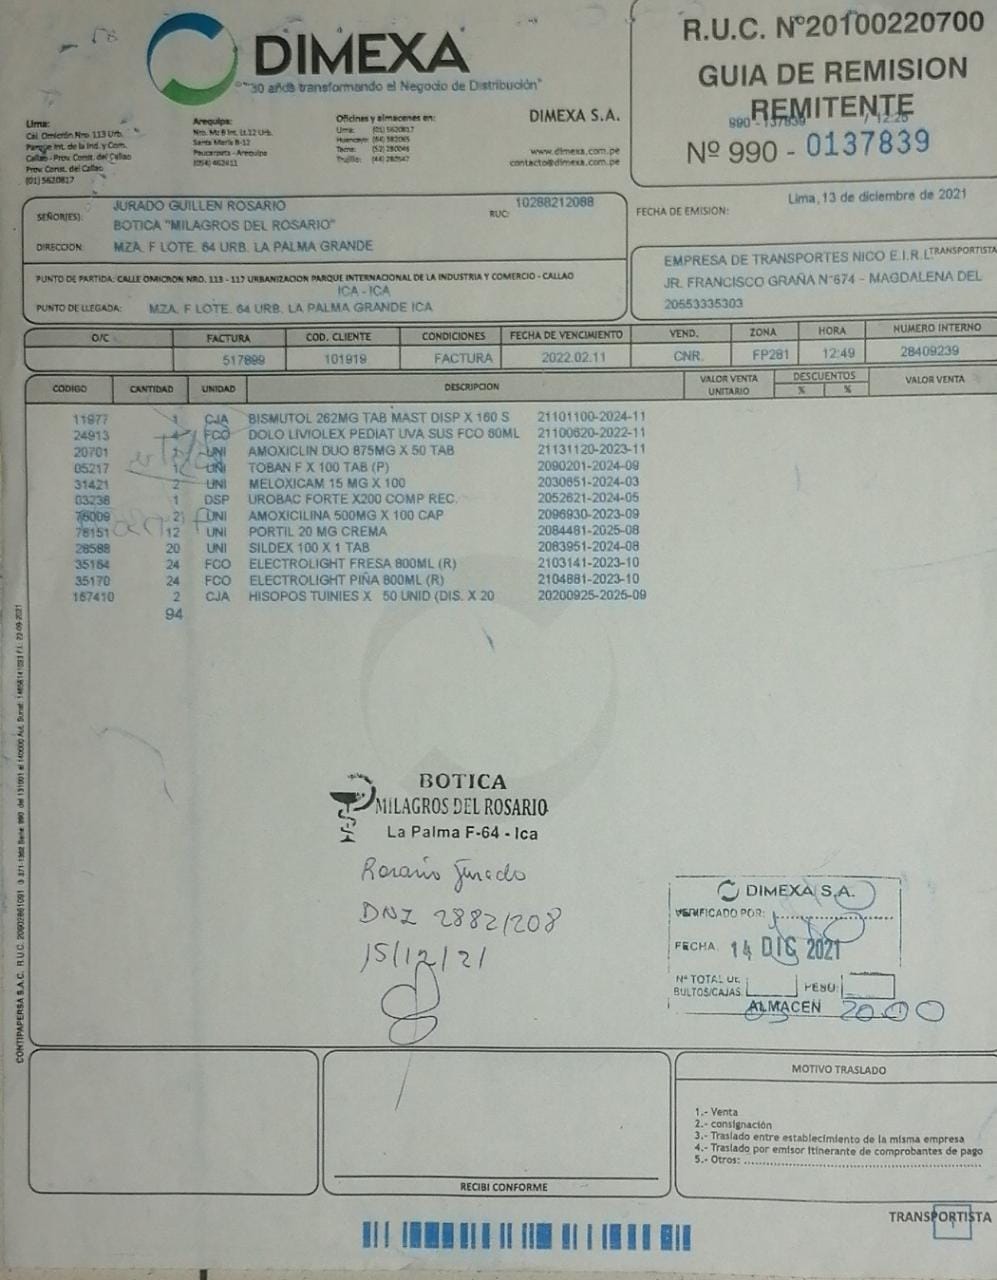 DIMEXA
"30 años transformando el Negocio de Distribución"
R.U.C. N°20100220700
GUIA DE REMISION
REMITENTE
990 - 137839 / 12:25
Nº 990 - 0137839
Lima:
Cal. Omicrón Nro. 113 Urb.
Parque Int. de la Ind. y Com.
Callao - Prov. Const. del Callao
Prov. Const. del Callao
(01) 5620817
Arequipa:
Nro. Mz B Int. Lt.12 Urb.
Santa María II-12
Paucarpata - Arequipa
(054) 462411
Oficinas y almacenes en:
Lima: (01) 5620817
Huancayo:
Tacna: (52) 280046
Trujillo:
DIMEXA S.A.
www.dimexa.com.pe
contacto@dimexa.com.pe
SEÑOR(ES): JURADO GUILLEN ROSARIO RUC: 10288212088
BOTICA "MILAGROS DEL ROSARIO"
DIRECCION: MZA. F LOTE. 64 URB. LA PALMA GRANDE
FECHA DE EMISION: Lima, 13 de diciembre de 2021
PUNTO DE PARTIDA: CALLE OMICRON NRO. 113 - 117 URBANIZACION PARQUE INTERNACIONAL DE LA INDUSTRIA Y COMERCIO - CALLAO
ICA - ICA
PUNTO DE LLEGADA: MZA. F LOTE. 64 URB. LA PALMA GRANDE ICA
TRANSPORTISTA
EMPRESA DE TRANSPORTES NICO E.I.R.L
JR. FRANCISCO GRAÑA N°674 - MAGDALENA DEL
20553335303
O/C FACTURA COD. CLIENTE CONDICIONES FECHA DE VENCIMIENTO VEND. ZONA HORA NUMERO INTERNO
517899 101919 FACTURA 2022.02.11 CNR. FP281 12:49 28409239
CODIGO CANTIDAD UNIDAD DESCRIPCION VALOR VENTA UNITARIO DESCUENTOS % % VALOR VENTA
11977 1 CJA BISMUTOL 262MG TAB MAST DISP X 160 S 21101100-2024-11
24913 FCO DOLO LIVIOLEX PEDIAT UVA SUS FCO 60ML 21100620-2022-11
20701 UNI AMOXICLIN DUO 875MG X 50 TAB 21131120-2023-11
05217 1 UNI TOBAN F X 100 TAB (P) 2090201-2024-09
31421 2 UNI MELOXICAM 15 MG X 100 2030651-2024-03
03238 1 DSP UROBAC FORTE X200 COMP REC. 2052621-2024-05
76009 2 UNI AMOXICILINA 500MG X 100 CAP 2096930-2023-09
78151 12 UNI PORTIL 20 MG CREMA 2084481-2025-08
28588 20 UNI SILDEX 100 X 1 TAB 2083951-2024-08
35164 24 FCO ELECTROLIGHT FRESA 800ML (R) 2103141-2023-10
35170 24 FCO ELECTROLIGHT PIÑA 800ML (R) 2104881-2023-10
167410 2 CJA HISOPOS TUINIES X 50 UNID (DIS. X 20 20200925-2025-09
94
BOTICA
MILAGROS DEL ROSARIO
La Palma F-64 - Ica
Rosario Jurado
DNI 28821208
15/12/21
DIMEXA S.A.
VERIFICADO POR:
FECHA 14 DIC 2021
Nº TOTAL DE
BULTOS/CAJAS PESO:
ALMACEN
MOTIVO TRASLADO
1.- Venta
2.- consignación
3.- Traslado entre establecimiento de la misma empresa
4.- Traslado por emisor itinerante de comprobantes de pago
5.- Otros:
RECIBI CONFORME
TRANSPORTISTA
1